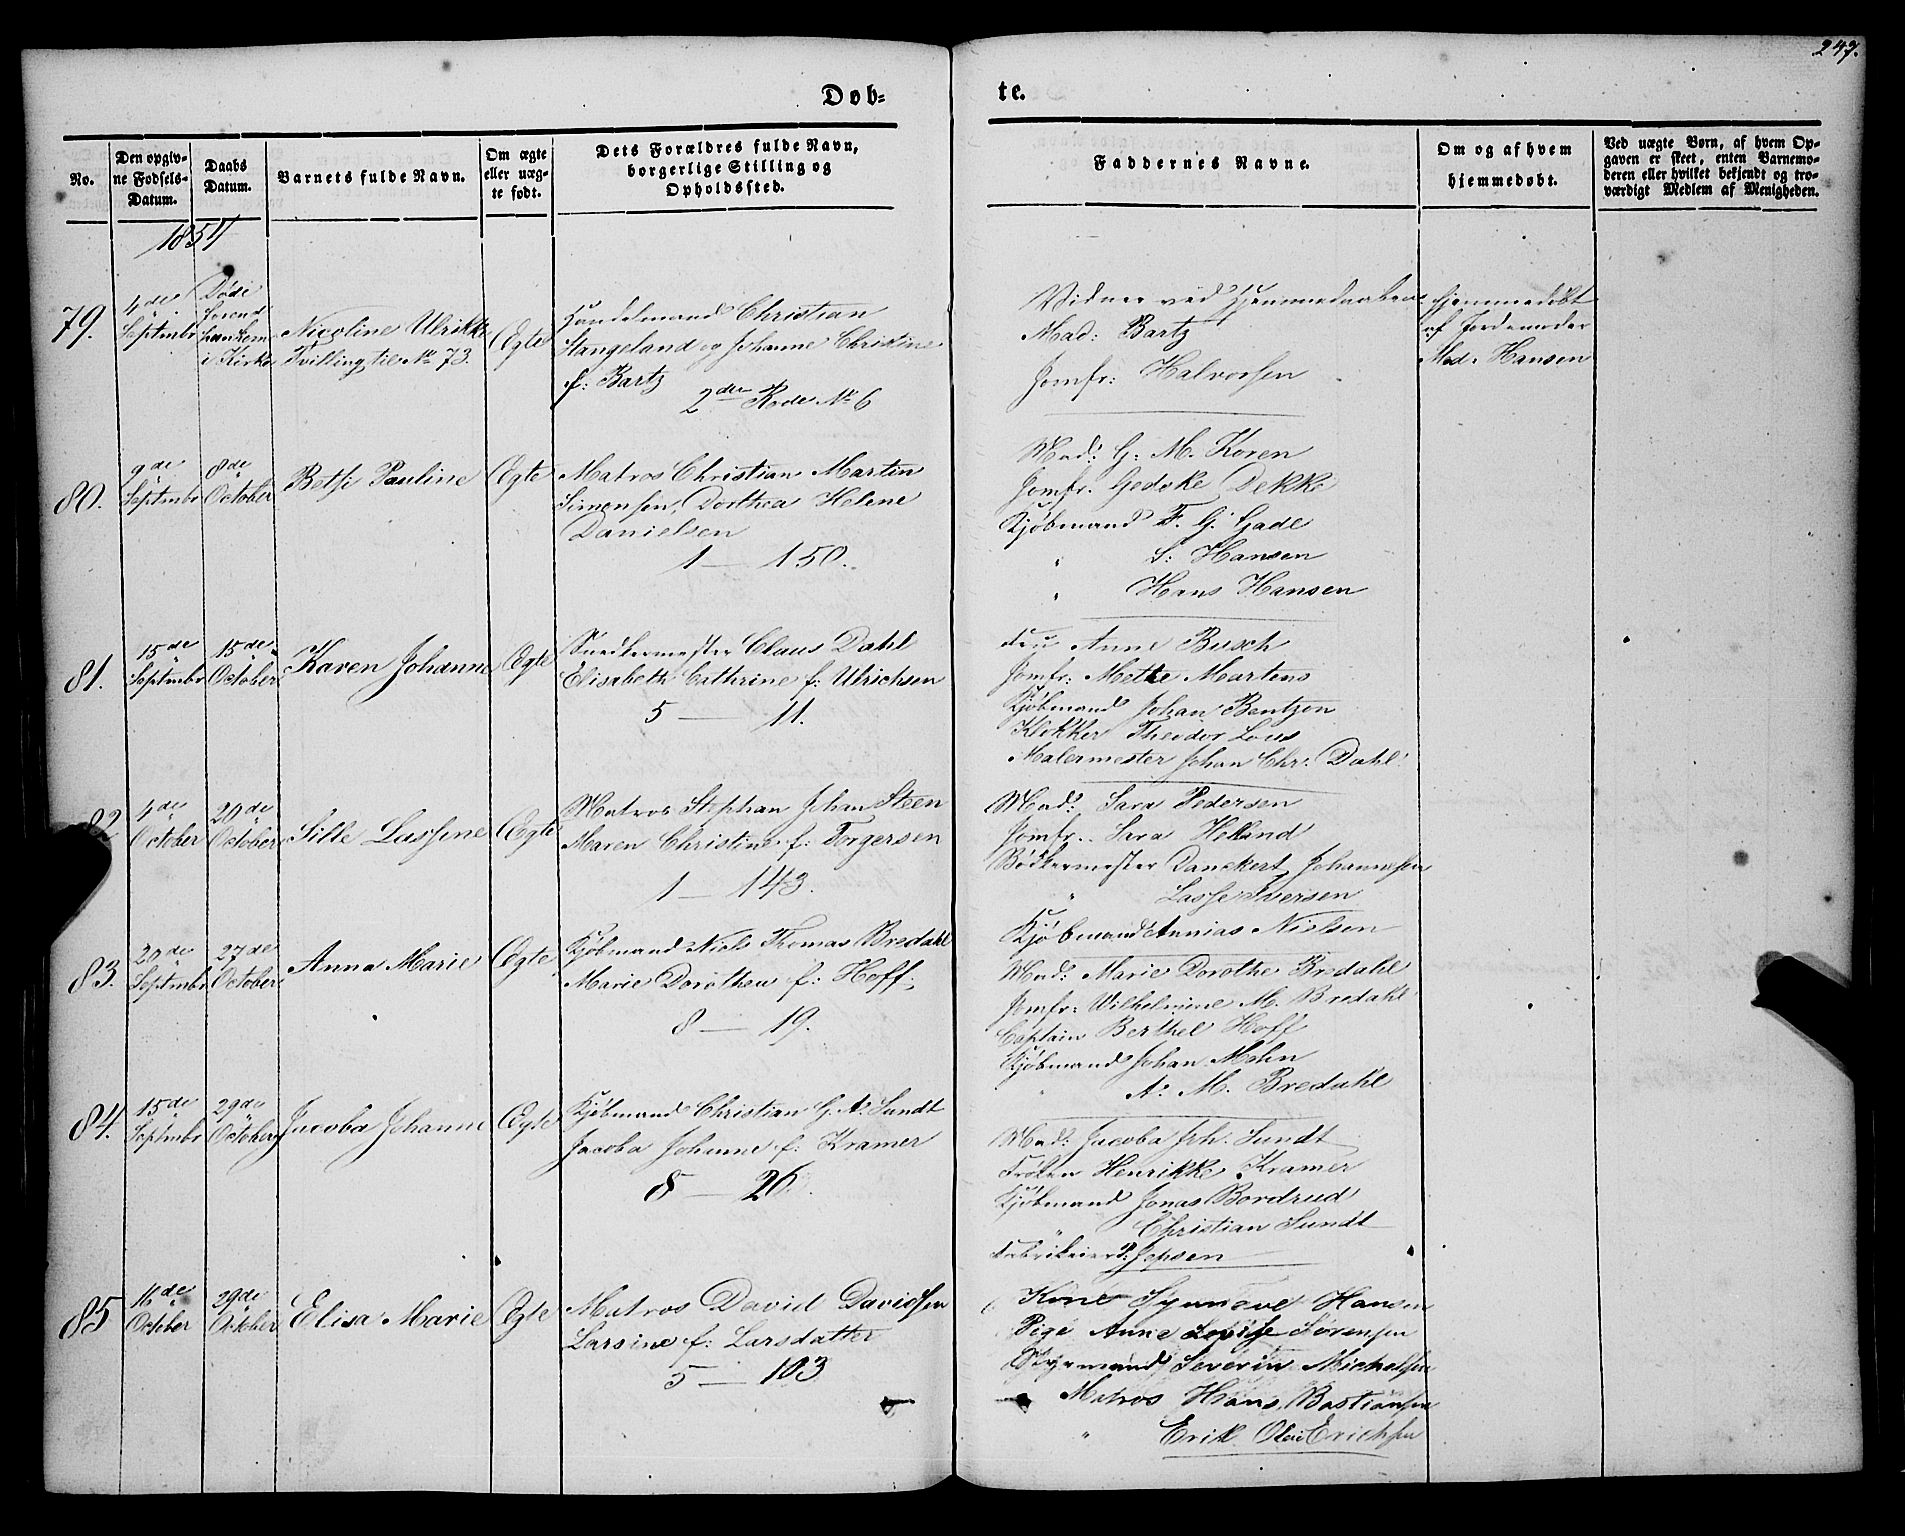 247.
Døb=
te.
No.
Den opgiv-
ne Fødsels-
Datum.
Daabs
Datum.
Barnets fulde Navn.
Om ægte
eller uæg-
te født.
Dets Forældres fulde Navn,
borgerlige Stilling og
Opholdssted.
Faddernes Navne.
Om og af hvem
hjemmedøbt.
Ved uægte Børn, af hvem Op-
gaven er skeet, enten Barnemo-
deren eller hvilket bekjendt og tro-
værdigt Medlem af Menigheden.
1854
79.
4de
Septmbr
Døde
forend
han kom
i Kirke
Nicoline Ulrikke
Tvilling til No 73.
Ægte
Handelsmand Christian
Stangeland og Johanne Christine
f: Bartz
2den Rode No 6
Vidner ved Hjemmedaaben
Mad: Bartz
Jomfr: Halvorsen
hjemmedøbt
af Jordemoder
Mad. Hansen
80.
9de
Septmbr
8de
October
Betsi Pauline
Ægte
Matros Christian Martin
Simensen, Dorthea Helene
Danielsen
1 — 150.
Mad: G. M. Koren
Jomfr. Gedske Dekke
Kjøbmand F. G. Gade
" S: Hansen
" Hans Hansen
81.
15de
Septmbr
15de
October
Karen Johanne
Ægte
Snedkermester Claus Dahl
Elisabeth Cathrine f: Ulrichsen
5 — 11.
Fru Anne Busch
Jomfr: Mette Martens
Kjøbmand Johan Bentzon
Klokker Theodor Lous
Malermester Johan Chr. Dahl.
82
4de
October
20de
October
Sille Lassine
Ægte
Matros Stephan Johan Steen
Maren Christine f: Torgersen
1 — 143.
Mad: Sara Pedersen
Jomfr. Sara Helland
Bødkermester Danckert Johannesen
" Lasse Iversen
Kjøbmand Annias Nielsen
83.
20de
Septmbr
27de
October
Anna Marie
Ægte
Kjøbmand Niels Thomas Bredahl
Marie Dorothea f: Hoff.
8 — 19.
Mad: Marie Dorothe Bredahl
Jomfr: Wilhelmine M. Bredahl
Captain Berthel Hoff
Kjøbmand Johan Mohn
" A. M. Bredahl
84.
15de
Septmbr
29de
October
Jacoba Johanne
Ægte
Kjøbmand Christian G. A. Sundt
Jacoba Johanne f: Kramer
8 — 26.
Mad: Jacoba Joh. Sundt
Frøken Henrikke Kramer
Kjøbmand Jonas Bordrud
" Christian Sundt
Fabrikeier P. Jepsen
85
16de
October
29de
October
Elisa Marie
Ægte
Matros David Davidsen
Larsine f: Larsdatter
5 — 103
Kone Synneve Hansen
Pige Anne Lovise Sørensen
Styrmand Severin Michelsen
Matros Hans Bastiansen
" Erik Olai Erichsen